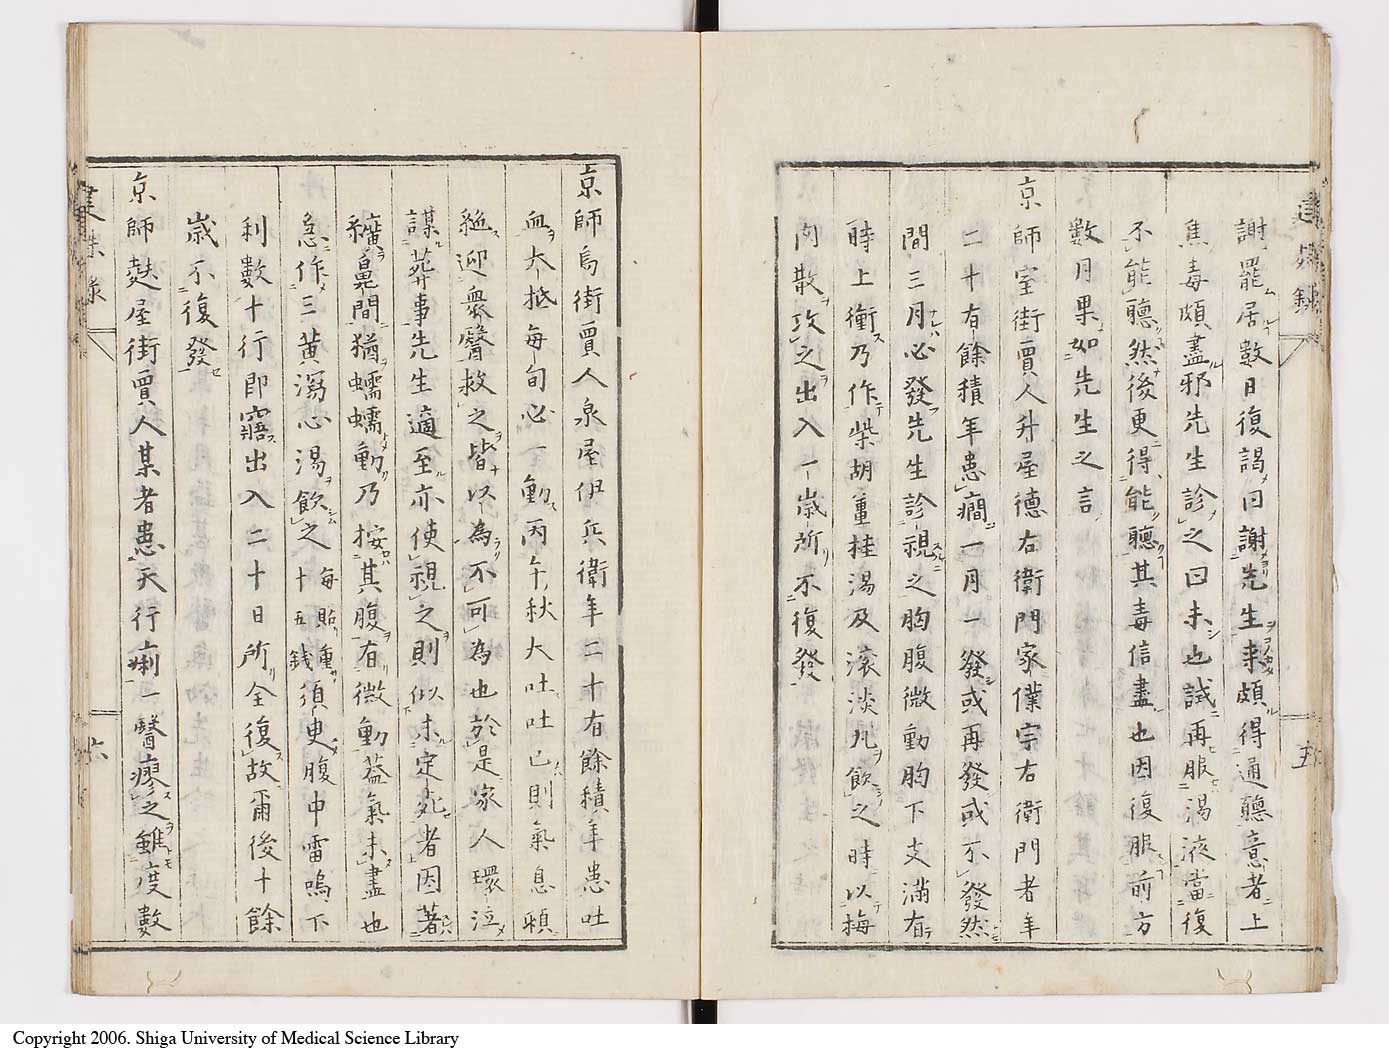 謝罷居數日復謁曰謝先生来頗得通聽意者上
焦毒頗盡邪先生診之曰未也試再服湯液當復
不能聽然後更得能聽其毒信盡也因復服前方
數月果如先生之言
京師室街賈人升屋德右衛門家僕宗右衛門者年
二十有餘積年患癇一月一發或再發或不發然
間三月必發先生診視之胸腹微動胸下支滿有
時上衝乃作柴胡薑桂湯及滾淡丸飲之時以梅
肉散攻之出入一歲所不復發
京師烏街賈人泉屋伊兵衛年二十有餘積年患吐
血大抵每旬必一動丙午秋大吐吐已則氣息頓
絶迎眾醫救之皆以為不可為也於是家人環泣
謀葬事先生適至亦使視之則似未定死者因著
纊鼻間猶蠕蠕動乃按其腹有微動蓋氣未盡也
急作三黃瀉心湯飲之每貼重十五錢須臾腹中雷鳴下
利數十行即寤出入二十日所全復故爾後十餘
歲不復發
京師麩屋街賈人某者患天行痢一醫療之雖度數
建殊錄
六